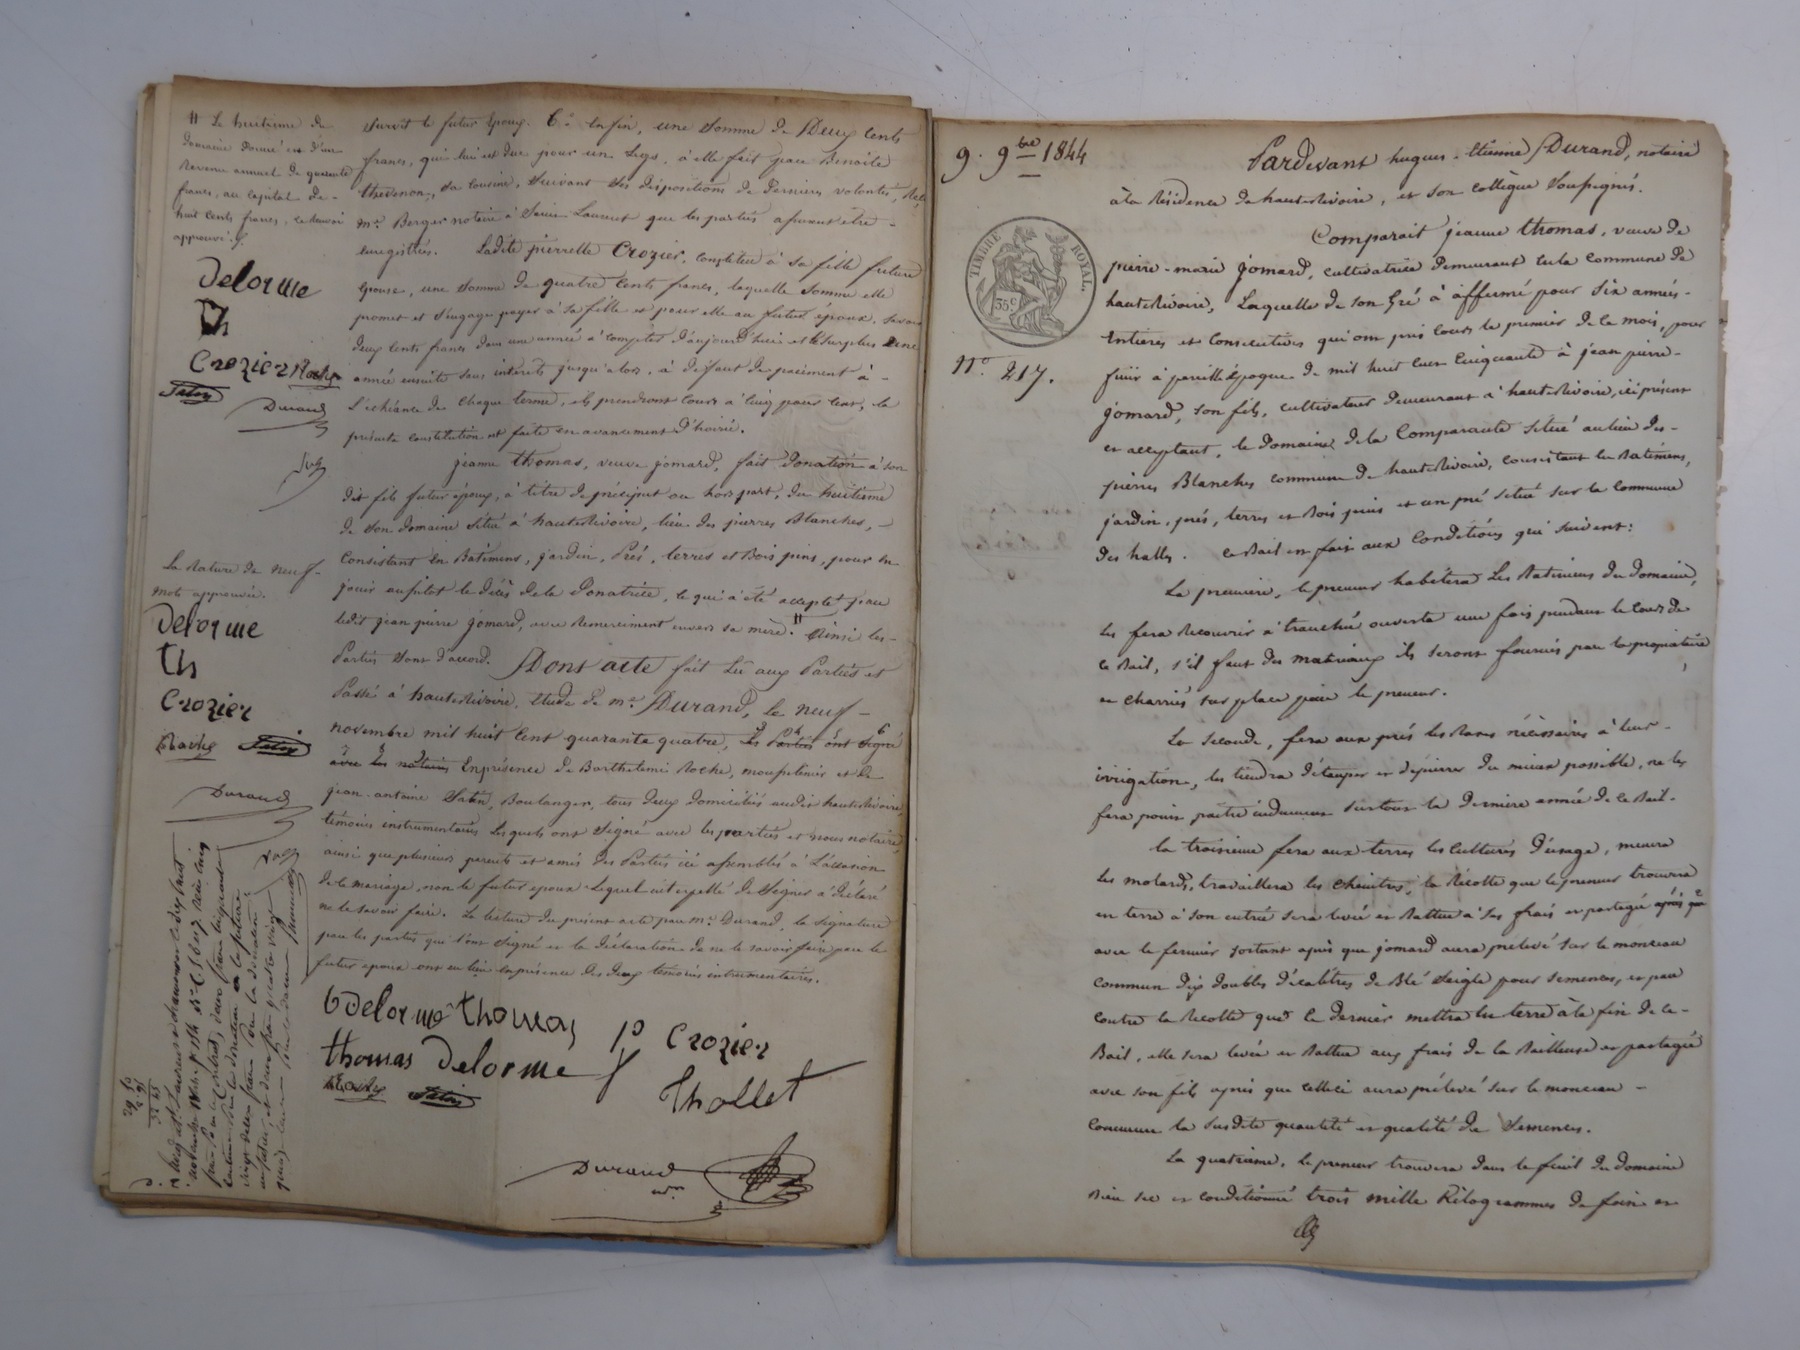 # Le huitième du
domaine donné est d'un
revenu annuel de quarante
francs, au capital de
huit cents francs, ce renvoi
approuvé.
Delorme
Th
Crozier Roche
Satin
Durand
La rature de neuf
mots approuvée.
Delorme
Th
Crozier
Roche Satin
Durand
survit le futur époux. 6.° Enfin, une somme de Deux cents
francs, qui lui est due pour un legs, à elle fait par Benoite
thevenon, sa cousine, suivant ses dispositions de dernière volonté,
m.e Berger notaire à Saint Laurent que les parties assurent etre
enregistrées. Ladite pierrette Crozier, constitue à sa fille future
épouse, une somme de quatre cents francs, laquelle somme elle
promet et s'engage payer à sa fille et pour elle au futur époux, savoir
deux cents francs dans une année à compter d'aujourd'hui et le surplus dans
année ensuite sans intérêts jusqu'alors, à défaut de paiement à
l'échéance de chaque terme, ils prendront cours à cinq pour cent, la
présente constitution est faite en avancement d'hoirie.
jeanne thomas, veuve jomard, fait donation à son
dit fils futur époux, à titre de préciput ou hors part, du huitième
de son domaine situé à hauterivoire, lieu des pierres Blanches,
Consistant en Batimens, jardin, Prés, terres et Bois pins, pour en
jouir aussitot le décès de la Donatrice, ce qui a été accepté par
ledit jean pierre jomard, avec remerciment envers sa mère. # Ainsi les
Parties sont d'accord. Dont acte fait Lu aux Parties et
Passé à hauterivoire, étude de m.e Durand, le neuf
novembre mil huit cent quarante quatre, Les Parties ont signé
avec les notaires En présence de Barthelemi Roche, et de
jean-antoine Satin, Boulanger, tous deux domiciliés audit hauterivoire,
témoins instrumentaires Lesquels ont signé avec les parties et nous notaire,
ainsi que plusieurs parents et amis des Parties ici assemblés à L'occasion
de ce mariage, non le futur époux lequel interpellé de signer a déclaré
ne le savoir faire. La lecture du présent acte par m.e Durand, la signature
par les parties qui l'ont signé et la déclaration de ne le savoir faire par le
futur époux ont eu lieu en présence des deux témoins instrumentaires.
Delorme thomas
thomas Delorme
p Crozier
Roche Satin
Thollet
Durand
9. 9bre 1844
TIMBRE ROYAL
35 c
N.° 217.
Pardevant hugues-Etienne Durand, notaire
à la Résidence de hauterivoire, et son collègue soussignés.
Comparait jeanne thomas, veuve de
pierre-marie jomard, cultivatrice demeurant en la commune de
hauterivoire, Laquelle de son gré à affermé pour six années
entieres et consecutives qui ont pris cours le premier de ce mois, pour
finir à pareille époque de mil huit cent cinquante à jean pierre
jomard, son fils, cultivateur demeurant à hauterivoire, ici présent
et acceptant, le domaine de la Comparante situé au lieu des
pierres Blanches commune de hauterivoire, consistant en Batimens,
jardin, prés, terres et Bois pins et un pré situé sur la commune
des halles. ce Bail est fait aux conditions qui suivent:
La première, le preneur habitera Les Batimens du Domaine,
les fera recouvrir à tranchée ouverte une fois pendant le cours de
ce Bail, s'il faut des materiaux ils seront fournis par la propriétaire
et charriés sur place par le preneur.
La Seconde, fera aux prés les rases nécéssaires à leur
irrigation, les tiendra détaupés et dépierrés du mieux possible, ne les
fera point paitre indument surtout la dernière année de ce Bail.
la troisieme fera aux terres les cultures d'usage, menera
les molards, travaillera les cheintres, la Récolte que le preneur trouvera
en terre à son entrée sera levée et Battue à ses frais et partagée après que
avec le fermier sortant après que jomard aura prélevé sur le monceau
commun dix doubles décalitres de Blé seigle pour semences, et par
contre la récolte que ce dernier mettra en terre à la fin de ce
Bail, elle sera levée et Battue aux frais de la Bailleuse et partagée
avec son fils après que celleci aura prélevé sur le monceau
Commun la susdite quantité et qualité de semences.
La quatrieme, le preneur trouvera dans le fenil du domaine
Bien sec et conditionné trois mille Kilogrammes de foin et